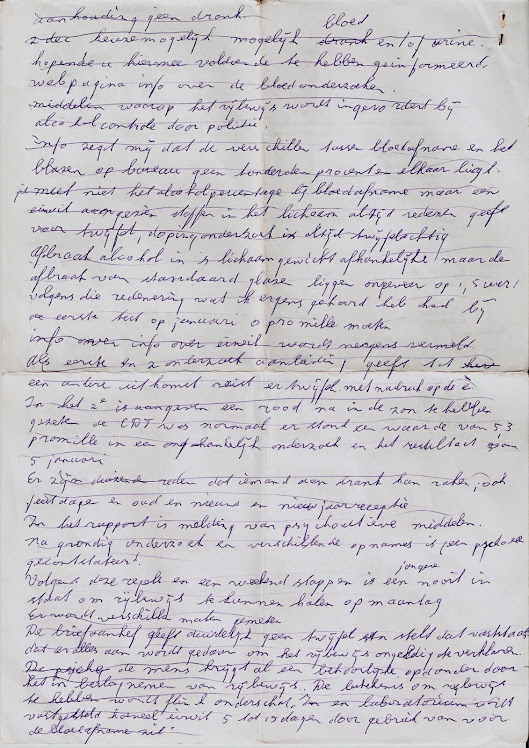 aanhouding geen drank.
bloed
2 dec keuze mogelijk mogelijk drank en/of urine.
hopende u hiermee voldoende te hebben geïnformeerd.
webpagina info over de bloedonderzoeken.
middelen waarop het rijbewijs wordt ingevorderd bij
alcoholcontrole door politie.
Info zegt mij dat de verschillen tussen bloedafname en het
blazen op bureau geen honderden procenten elkaar ligt.
je meet niet het alcoholpercentage bij bloedafname maar een
eiwit aangezien stoffen in het lichaam altijd redenen geeft
voor twijfel, dopingonderzoek is altijd twijfelachtig
Afbraak alcohol is lichaamsgewicht afhankelijk! maar de
afbraak van standaard glazen liggen ongeveer op 1,5 uur!
volgens die redenering wat ik ergens gehoord heb had bij
de eerste test op januari 0 promille moeten
info over info over eiwit wordt nergens vermeld
Als eerste en 2 onderzoek aanleiding geeft tot
een andere uitkomst reist er twijfel met nadruk op de
In het 2e is aangegeven een rood na in de zon te hebben
gezeten de CDT was normaal er stond een waarde van 5 3
promille in een onafhankelijk onderzoek en het resultaat
5 januari
Er zijn reden dat iemand aan drank kan raken, och
feestdagen en oud en nieuw en nieuwjaarsreceptie
In het rapport is melding van psychoactieve middelen.
Na grondig onderzoek en verschillende opnames is geen psychose
geconstateer!
jongere
Volgens deze regels en een weekend stappen is een nooit in
staat om rijbewijs te kunnen halen op maandag
Er wordt verschillende maten gemeten
De briefaanhef geeft duidelijk geen twijfel en stelt dat vaststaat
dat er alles aan wordt gedaan om het rijbewijs ongeldig te verklaren
De psyche de mens krijgt al een behoorlijke opdonder door
het in beslagnemen van rijbewijs. De betekenis om rijbewijs
te hebben wordt flink onderschat. In en laboratorium wordt
vastgesteld hoeveel eiwit 5 tot 15 dagen door gebruik van voor
de bloedafname zit.